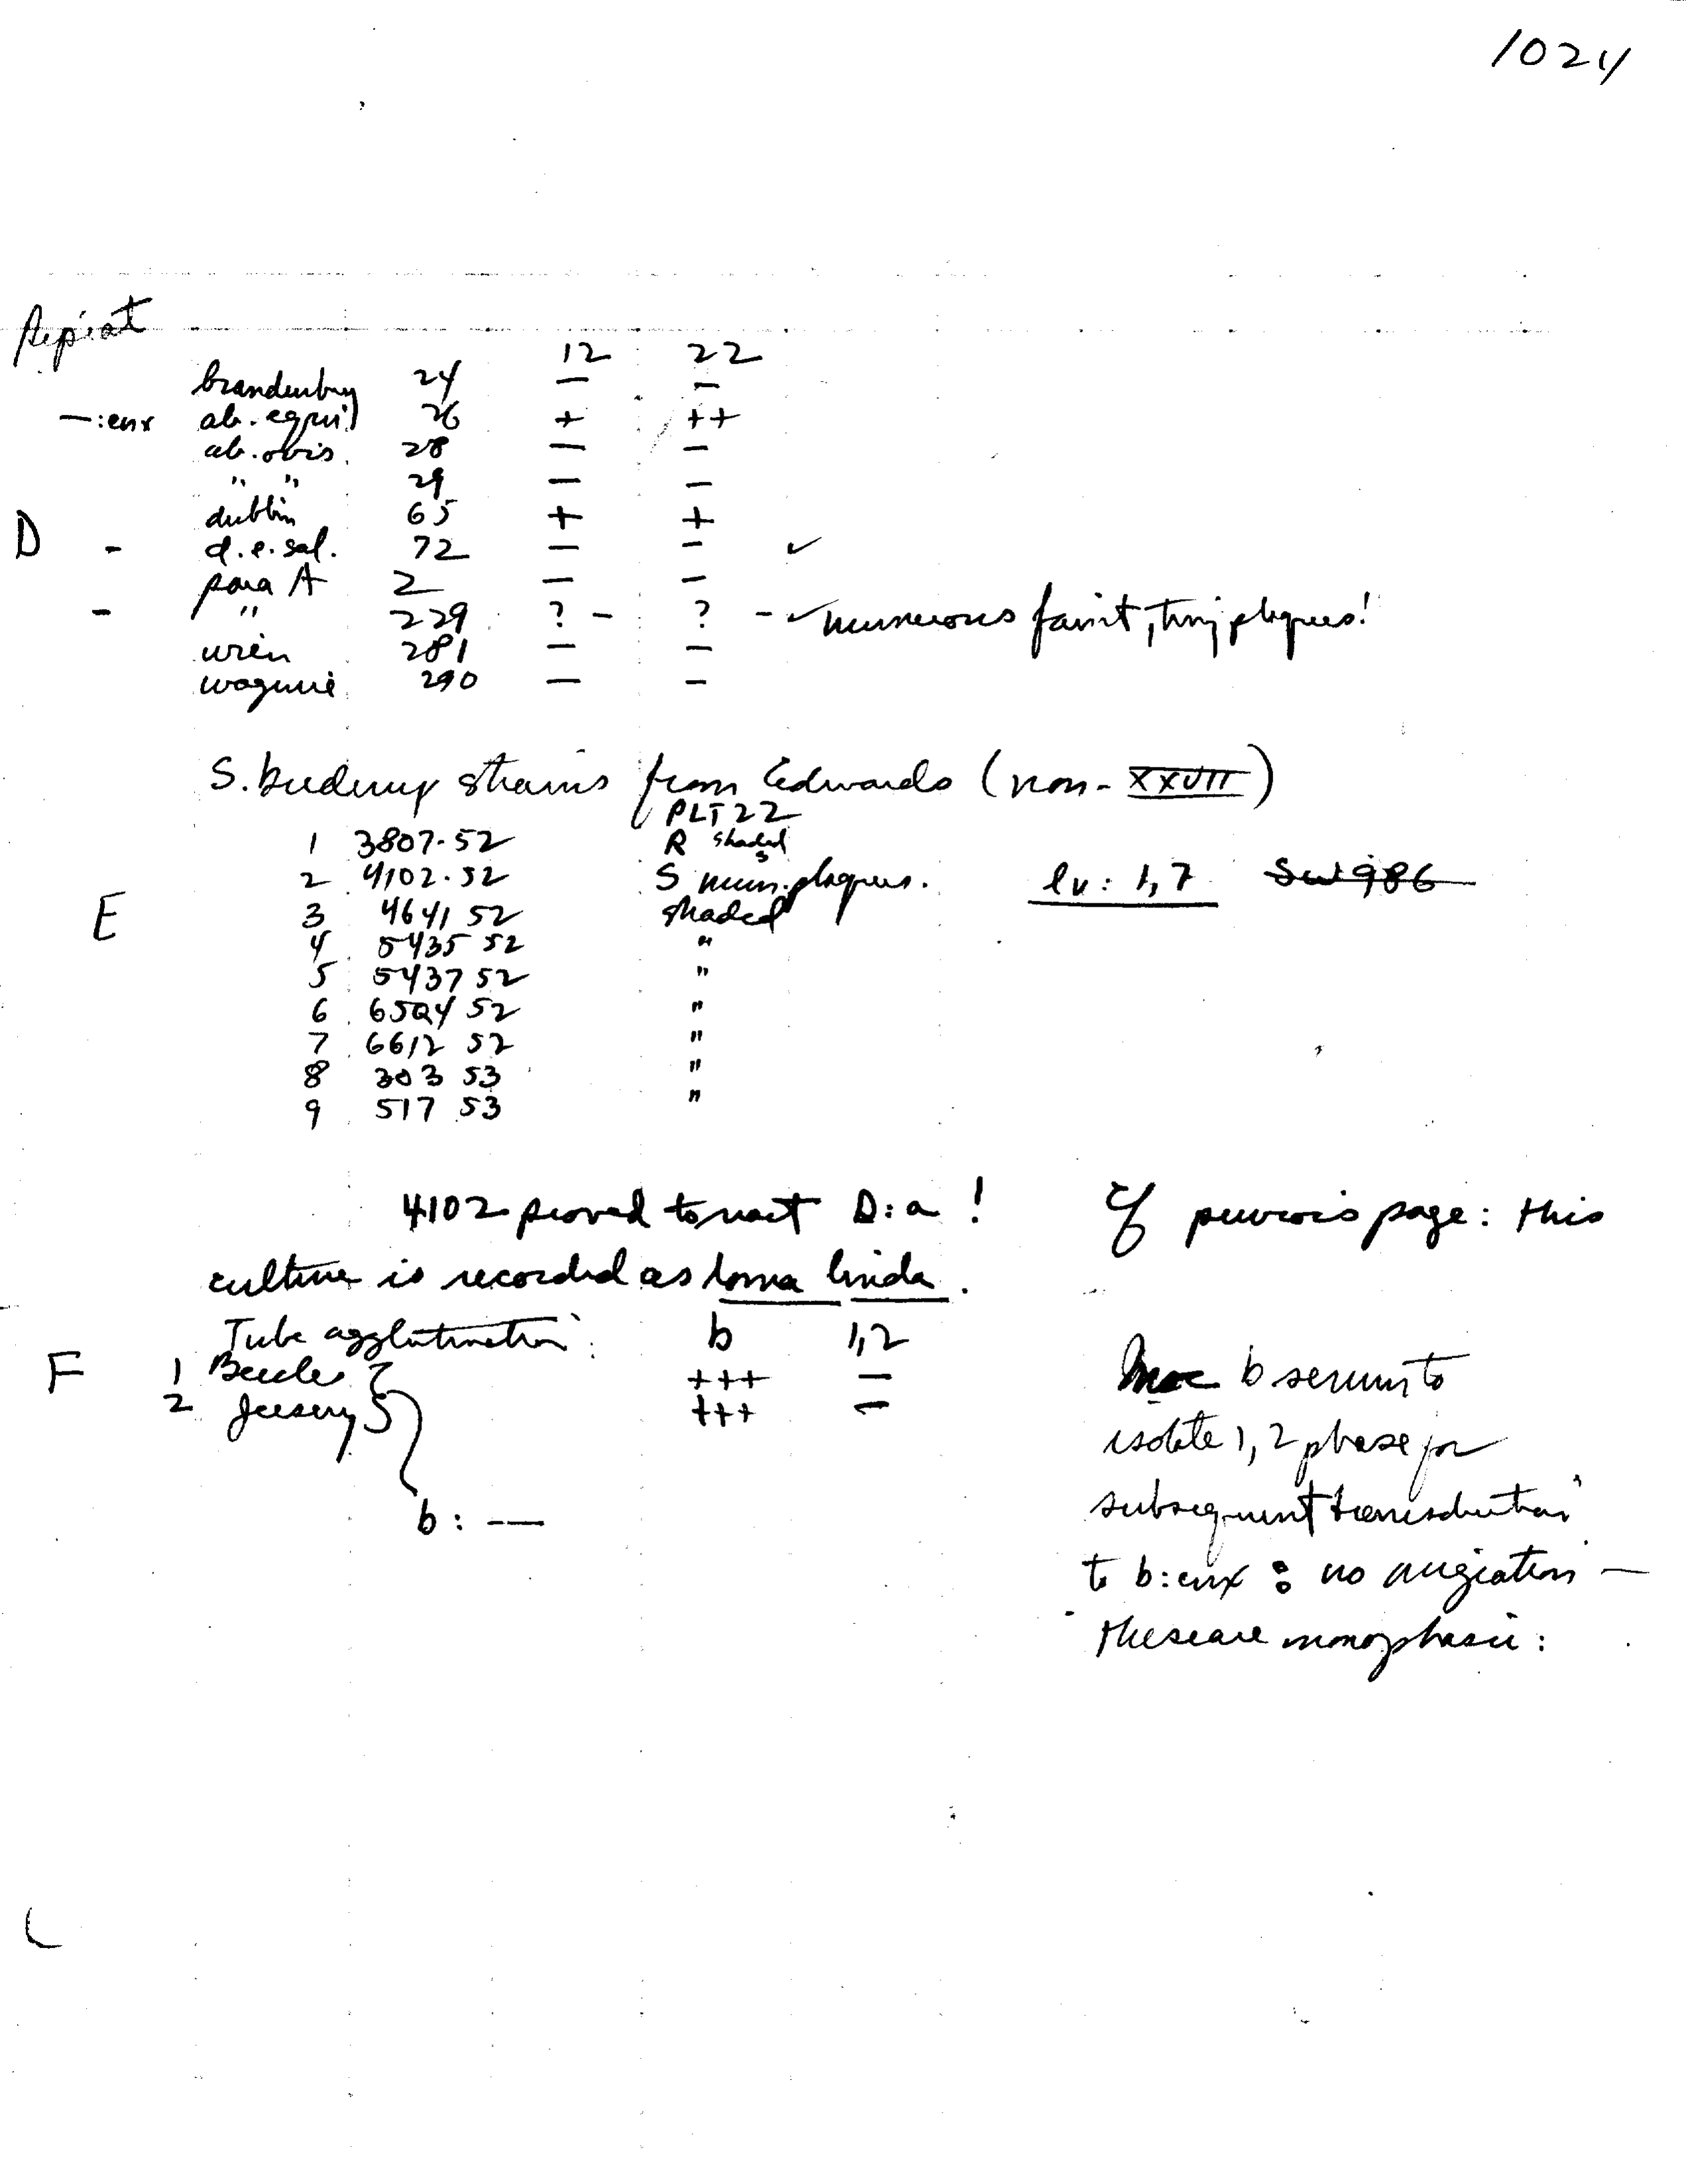 1024
Repeat
12 22
brandenburg 24 — —
—:enx ab. equi 26 + ++
ab. ovis. 28 — —
" " 29 — —
dublin 65 + +
D - 72 — — ✓
para A 2 — —
- " 229 ? - ? - ✓ numerous faint, tiny plaques!
281 — —
290 — —
S. strains from Edwards (non-XXVII)
PLT22
1 3807.52 R shaded
2 4102.52 S num. plaques. lv: 1,7 ~~SW986~~
E 3 4641 52 shaded
4 5435 52 "
5 5437 52 "
6 6524 52 "
7 6612 52 "
8 303 53 "
9 517 53 "
4102 proved to react D:a! Cf previous page: this
culture is recorded as loma linda.
Tube agglutination: b 1,2
F 1 Beccles +++ —
2 +++ —
b: —
b serum to
isolate 1,2 phase for
subsequent transduction
to b:enx : no migration —
these are monophasic: